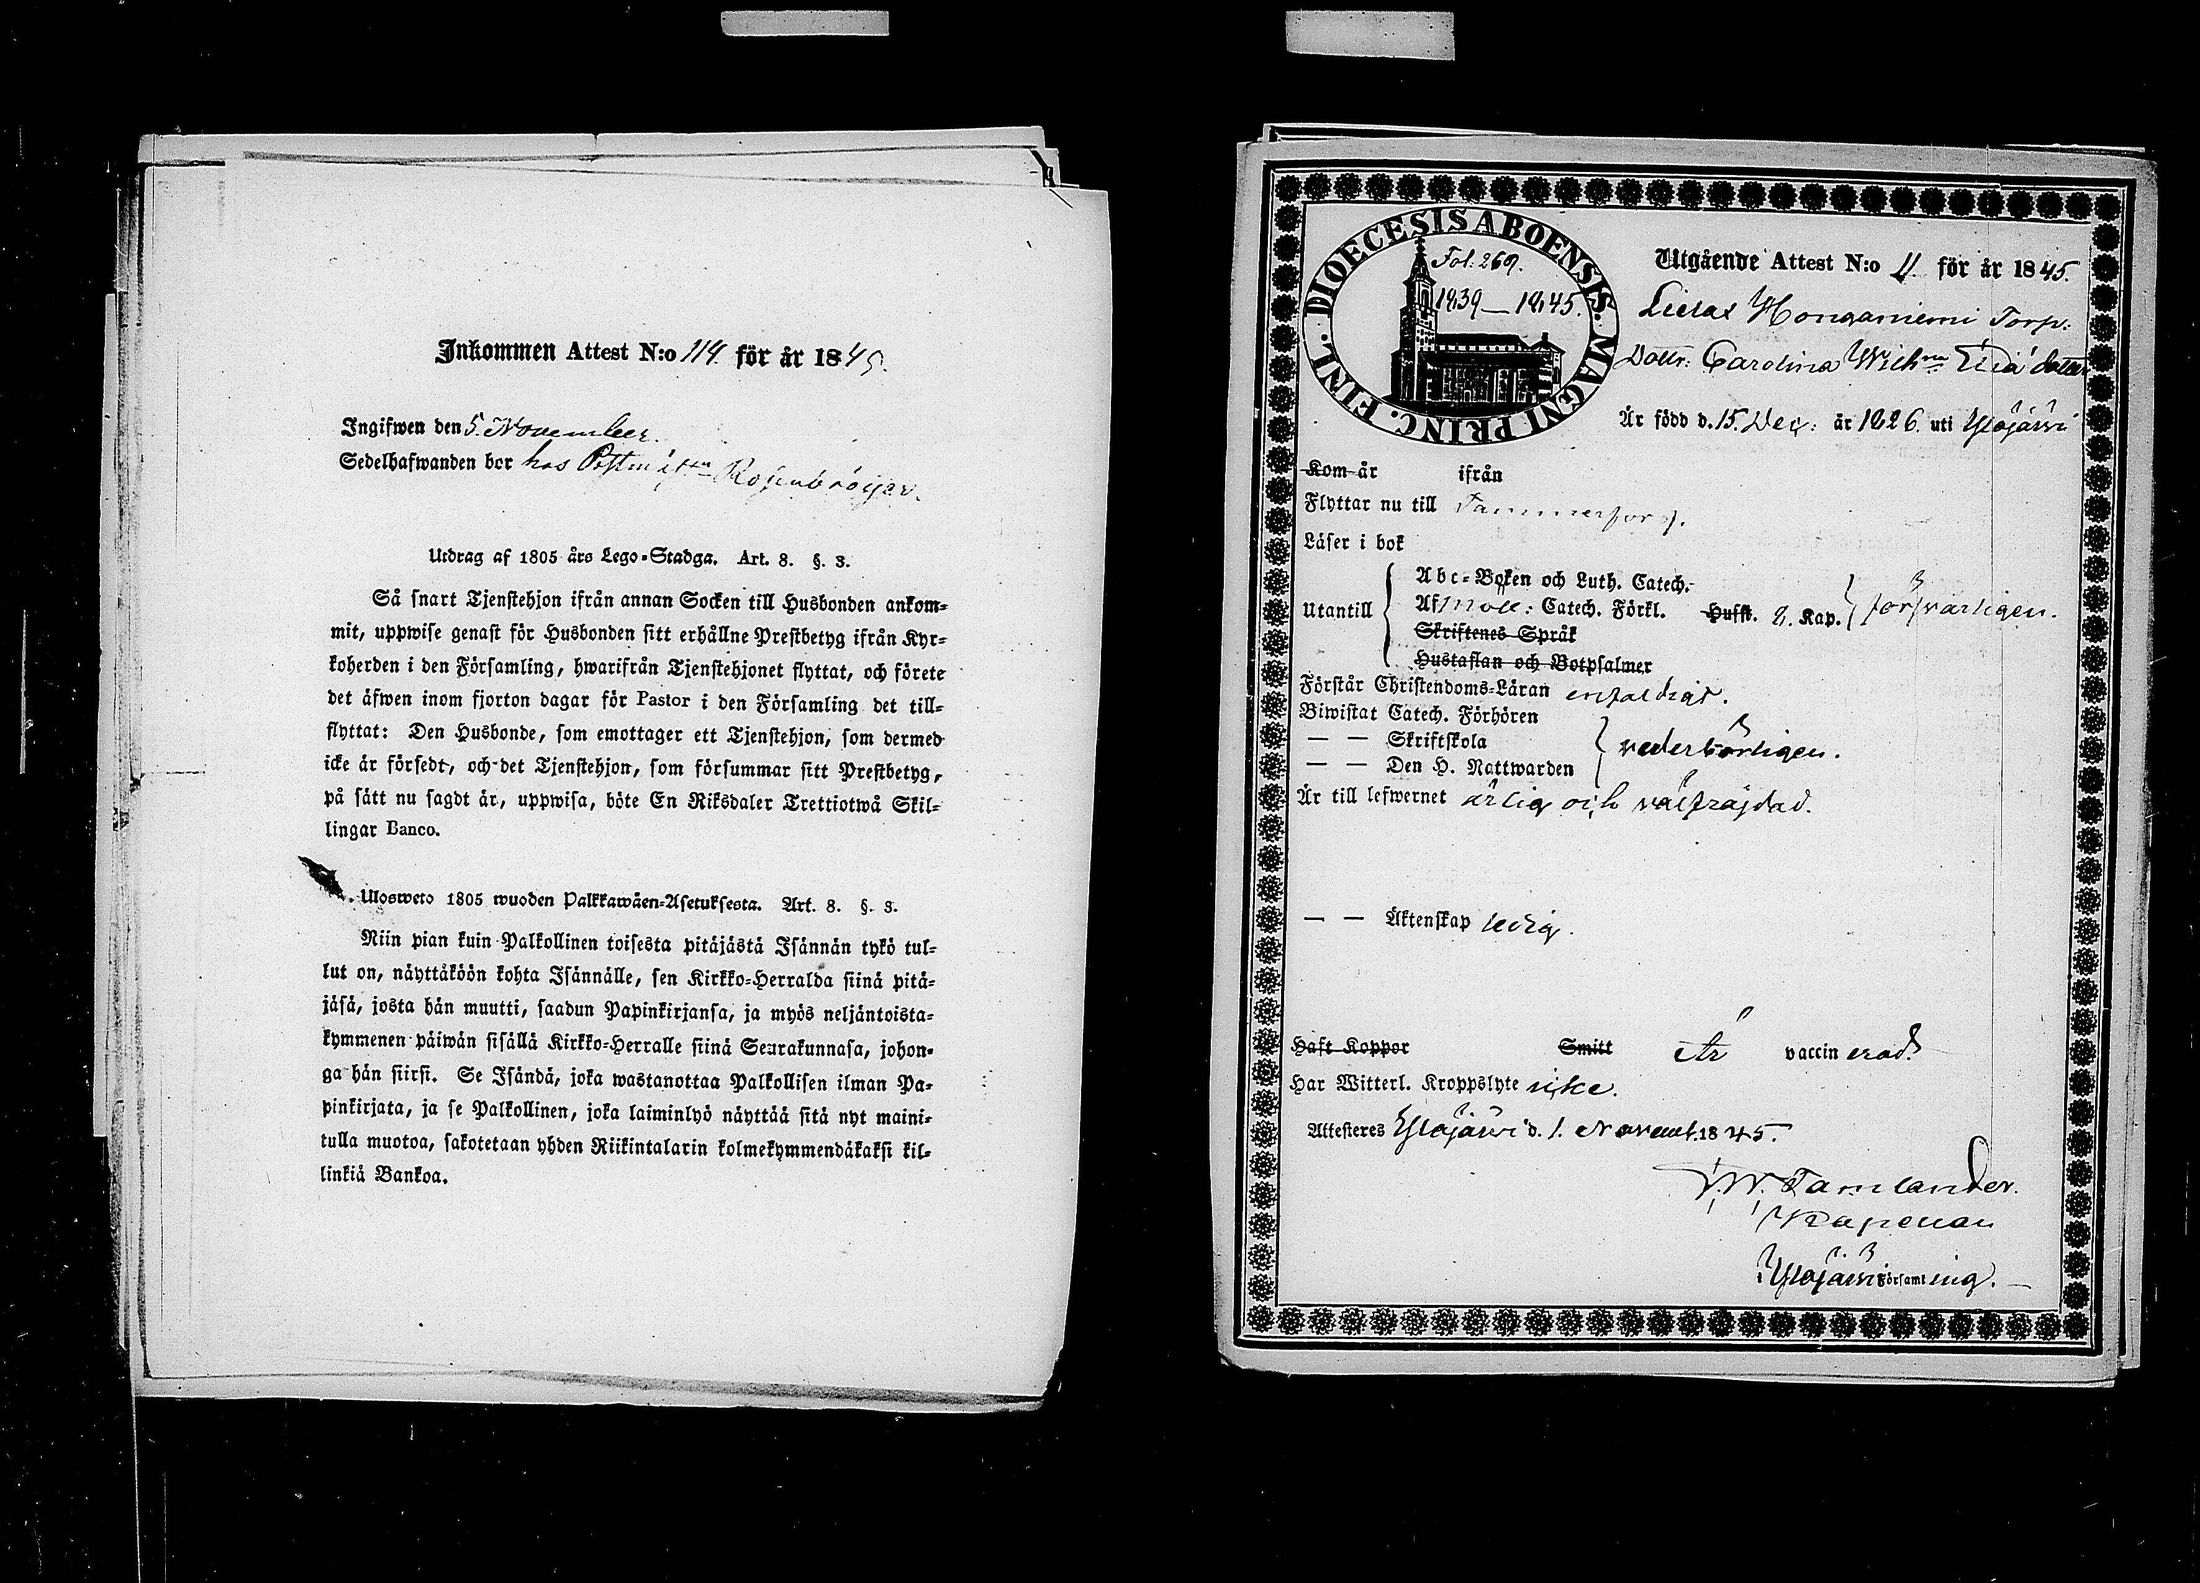 Inkommen Attest N:o 114. för år 1845.
Ingifwen den 5. November.
Sedelhafwanden bor hos Postmäst:n Rosenbröijer.
Utdrag af 1805 års Lego-Stadga. Art. 8. §. 3.
Så snart Tjenstehjon ifrån annan Socken till Husbonden ankom-
mit, uppwise genast för Husbonden sitt erhållne Prestbetyg ifrån Kyr-
koherden i den Församling, hwarifrån Tjenstehjonet flyttat, och förete
det äfwen inom fjorton dagar för Pastor i den Församling det till-
flyttat: Den Husbonde, som emottager ett Tjenstehjon, som dermed
icke är försedt, och det Tjenstehjon, som försummar sitt Prestbetyg,
på sätt nu sagdt är, uppwisa, böte En Riksdaler Trettiotwå Skil-
lingar Banco.
Ulosweto 1805 wuoden Palkkawäen-Asetuksesta. Art. 8. §. 3.
Niin pian kuin Palkollinen toisesta pitäjästä Isännän tykö tul-
lut on, näyttäköön kohta Isännälle, sen Kirkko-Herralda siinä pitä-
jäsä, josta hän muutti, saadun Papinkirjansa, ja myös neljäntoista-
kymmenen päiwän sisällä Kirkko-Herralle siinä Seurakunnasa, johon-
ga hän siirsi. Se Isändä, joka wastanottaa Palkollisen ilman Pa-
pinkirjata, ja se Palkollinen, joka laiminlyö näyttää sitä nyt maini-
tulla muotoa, sakotetaan yhden Riikintalarin kolmekymmendäkaksi kil-
linkiä Bankoa.
DIOECESIS ABOENSIS. MAGNI PRINC. FINL.
Fol: 269.
1839–1845.
Utgående Attest N:o 11. för år 1845.
Lielax Honganiemi Torp:
Dottr: Carolina Wilh:na dotter
Är född d. 15. Dec: år 1826. uti Ylöjärvi
Kom år ifrån
Flyttar nu till Tammerfors.
Läser i bok
Utantill
Abc-Boken och Luth. Catech.
Af Möll: Catech. Förkl. Hufst. 2. Kap. försvarligen.
Skriftenes Språk
Hustaflan och Botpsalmer
Förstår Christendoms-Läran enfaldigt.
Biwistat Catech. Förhören
— — Skriftskola
vederbörligen.
— — Den H. Nattwarden
Är till lefwernet ärlig och välfrägdad.
— — Äktenskap ledig.
Haft Koppor Smitt är vaccinerad.
Har Witterl. Kroppslyte icke.
Attesteres Ylöjärvi d. 1. Novemb. 1845.
Tamlander.
Kapellan
Ylöjärvi Församling.